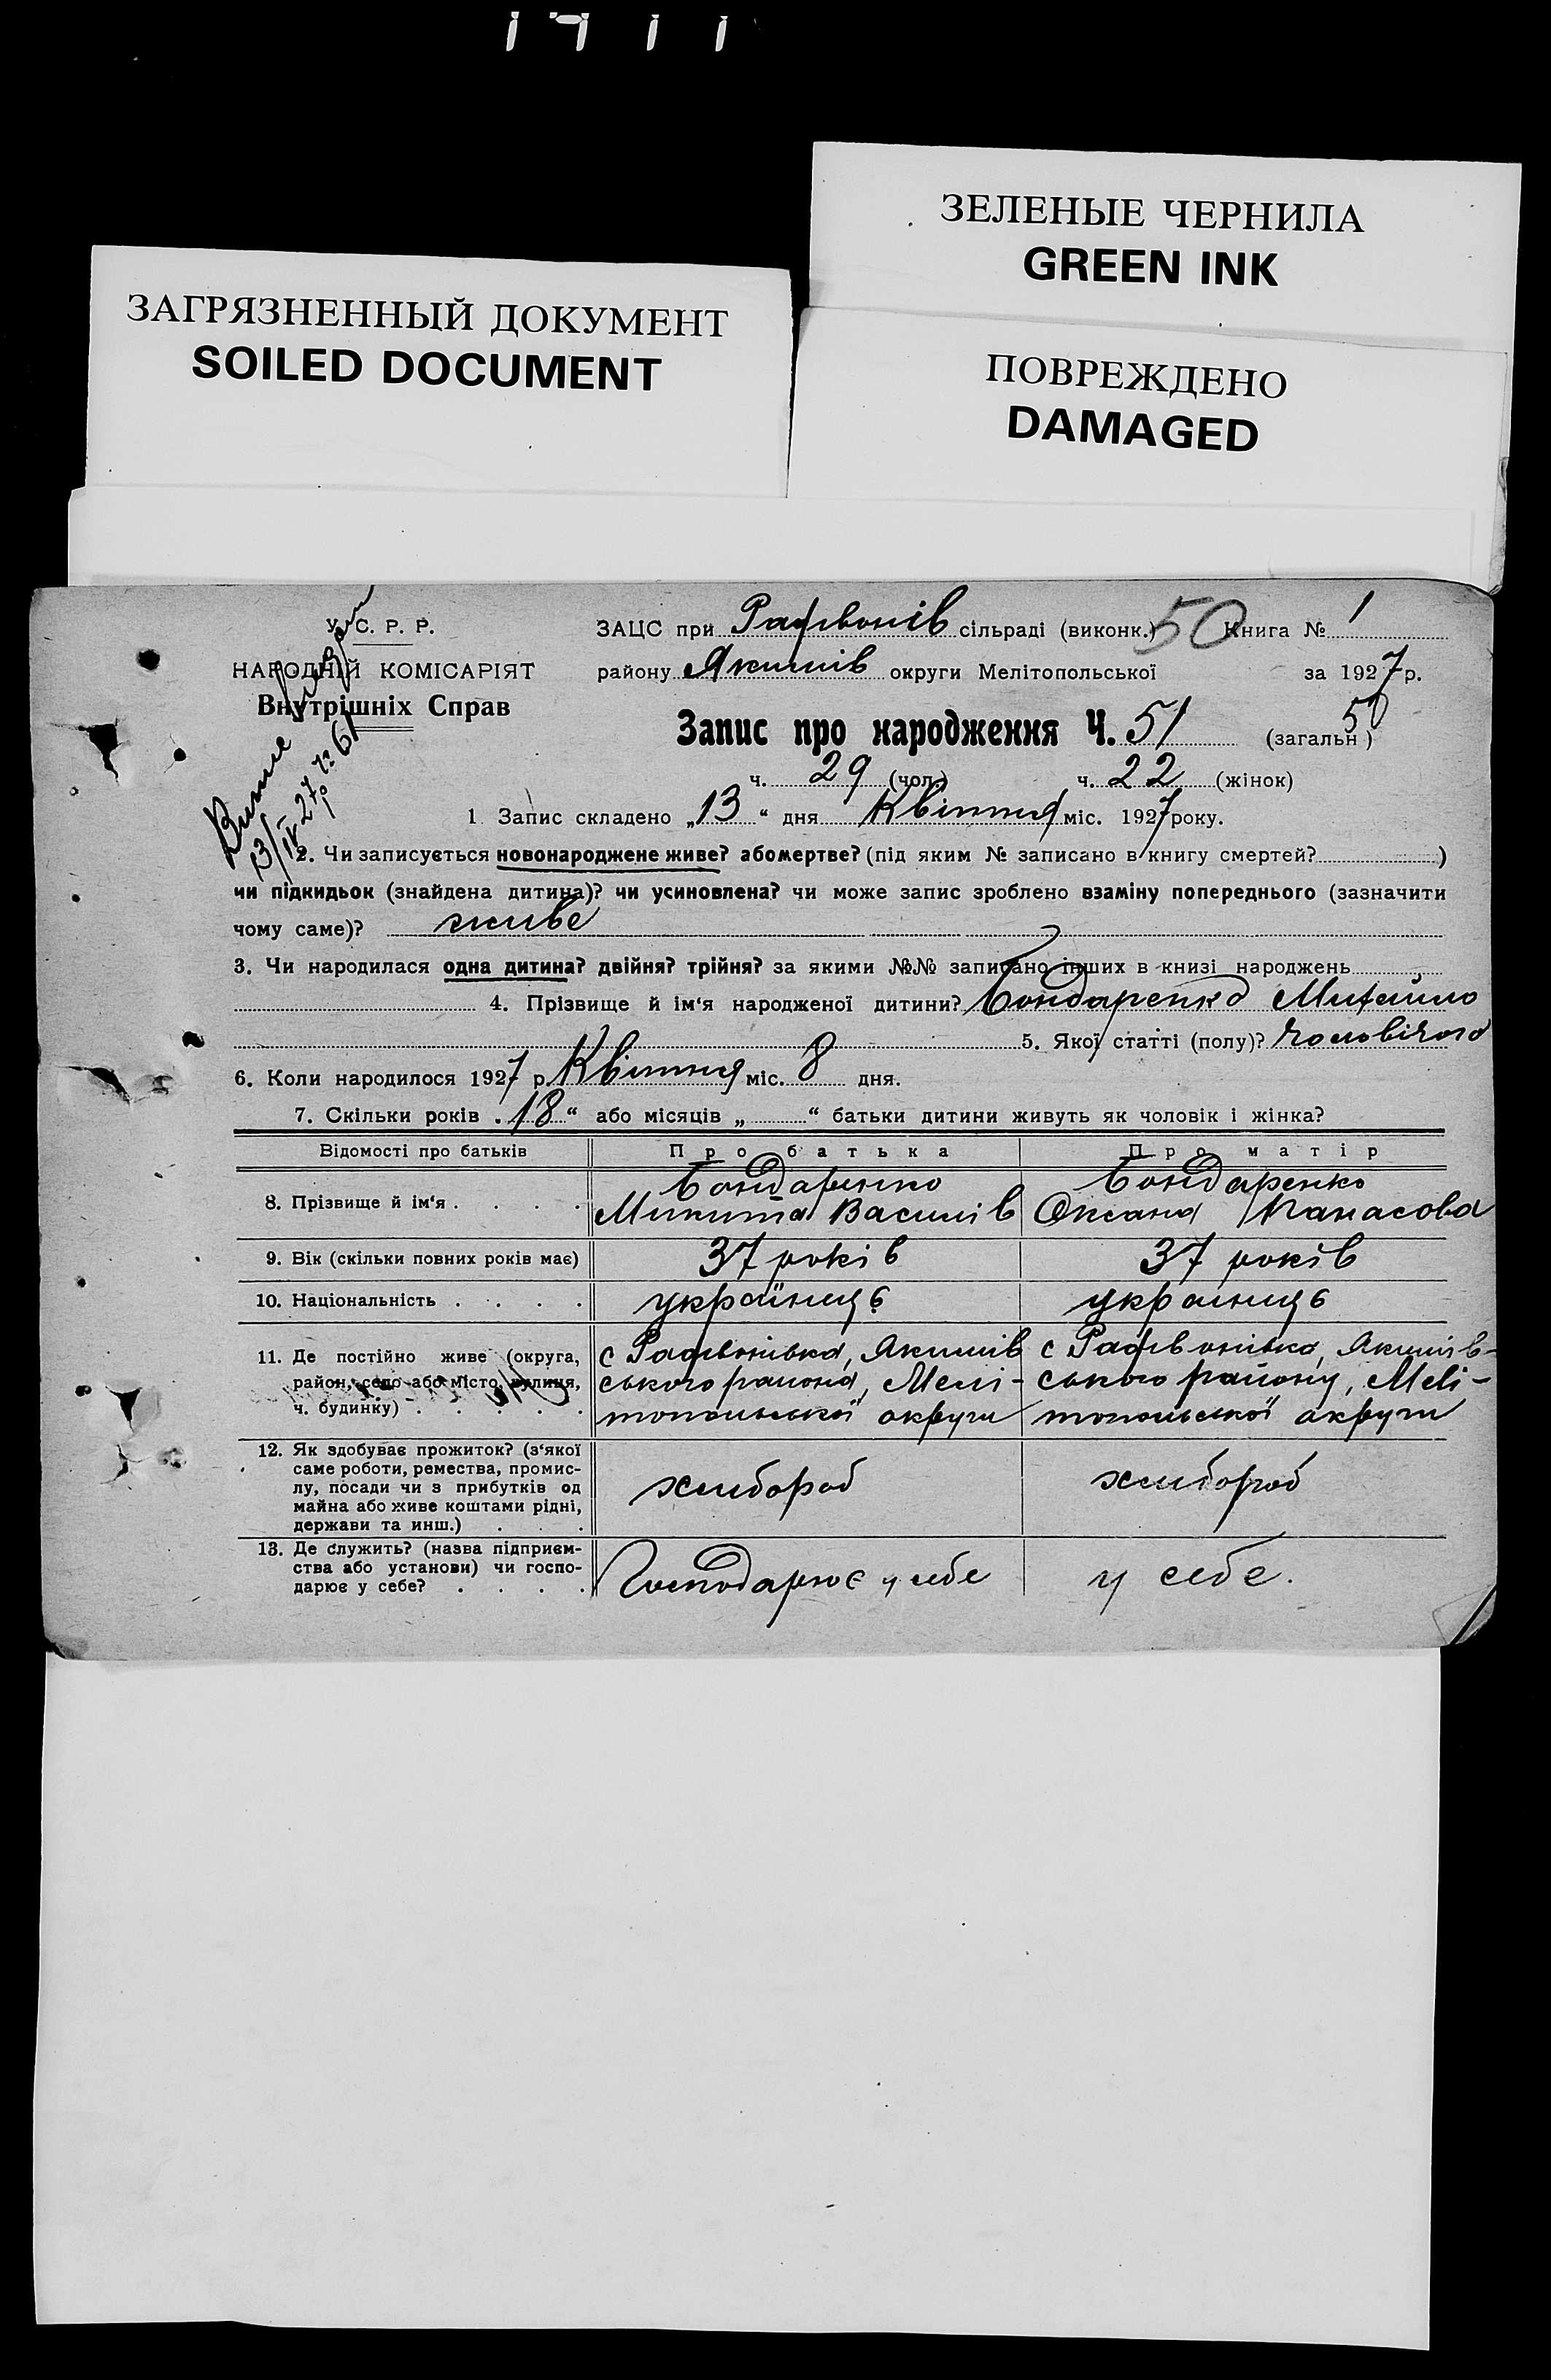 1911
ЗЕЛЕНЫЕ ЧЕРНИЛА
GREEN INK
ЗАГРЯЗНЕННЫЙ ДОКУМЕНТ
SOILED DOCUMENT
ПОВРЕЖДЕНО
DAMAGED
У. С. Р. Р.
НАРОДНІЙ КОМІСАРІЯТ
Внутрішніх Справ
13/IV 27 р № 61
ЗАЦС при Радивонів сільраді (виконк.) 50 Книга № 1
району Якимів округи Мелітопольської за 1927 р.
Запис про народження Ч. 51 (загальн) 50
ч. 29 (чол.) ч. 22 (жінок)
1 Запис складено „13“ дня Квітня міс. 1927 року.
2. Чи записується новонароджене живе? або мертве? (під яким № записано в книгу смертей? )
чи підкидьок (знайдена дитина)? чи усиновлена? чи може запис зроблено взаміну попереднього (зазначити
чому саме)? живе
3. Чи народилася одна дитина? двійня? трійня? за якими №№ записано інших в книзі народжень
4. Прізвище й ім‘я народженої дитини? Бондаренко Михайло
5. Якої статті (полу)? чоловічого
6. Коли народилося 1927 р. Квітня міс. 8 дня.
7. Скільки років „18“ або місяців „ “ батьки дитини живуть як чоловік і жінка?
Відомості про батьків Про батька Про матір
8. Прізвище й ім‘я . . . . Бондаренко Бондаренко
Микита Василів Оксана Панасова
9. Вік (скільки повних років має) 37 років 37 років
10. Національність . . . . українць українць
11. Де постійно живе (округа, с Радивонівка, Якимів с Радивонівка, Якимів-
район, село або місто, вулиця, ського района, Мелі- ського району, Мелі-
ч. будинку) . . . . . топольської округи топольської округи
12. Як здобуває прожиток? (з‘якої
саме роботи, ремества, промис-
лу, посади чи з прибутків од хлибороб хлибороб
майна або живе коштами рідні,
держави та инш.) . . .
13. Де служить? (назва підприєм-
ства або установи) чи госпо- Господарює у себе у себе.
дарює у себе? . . . .